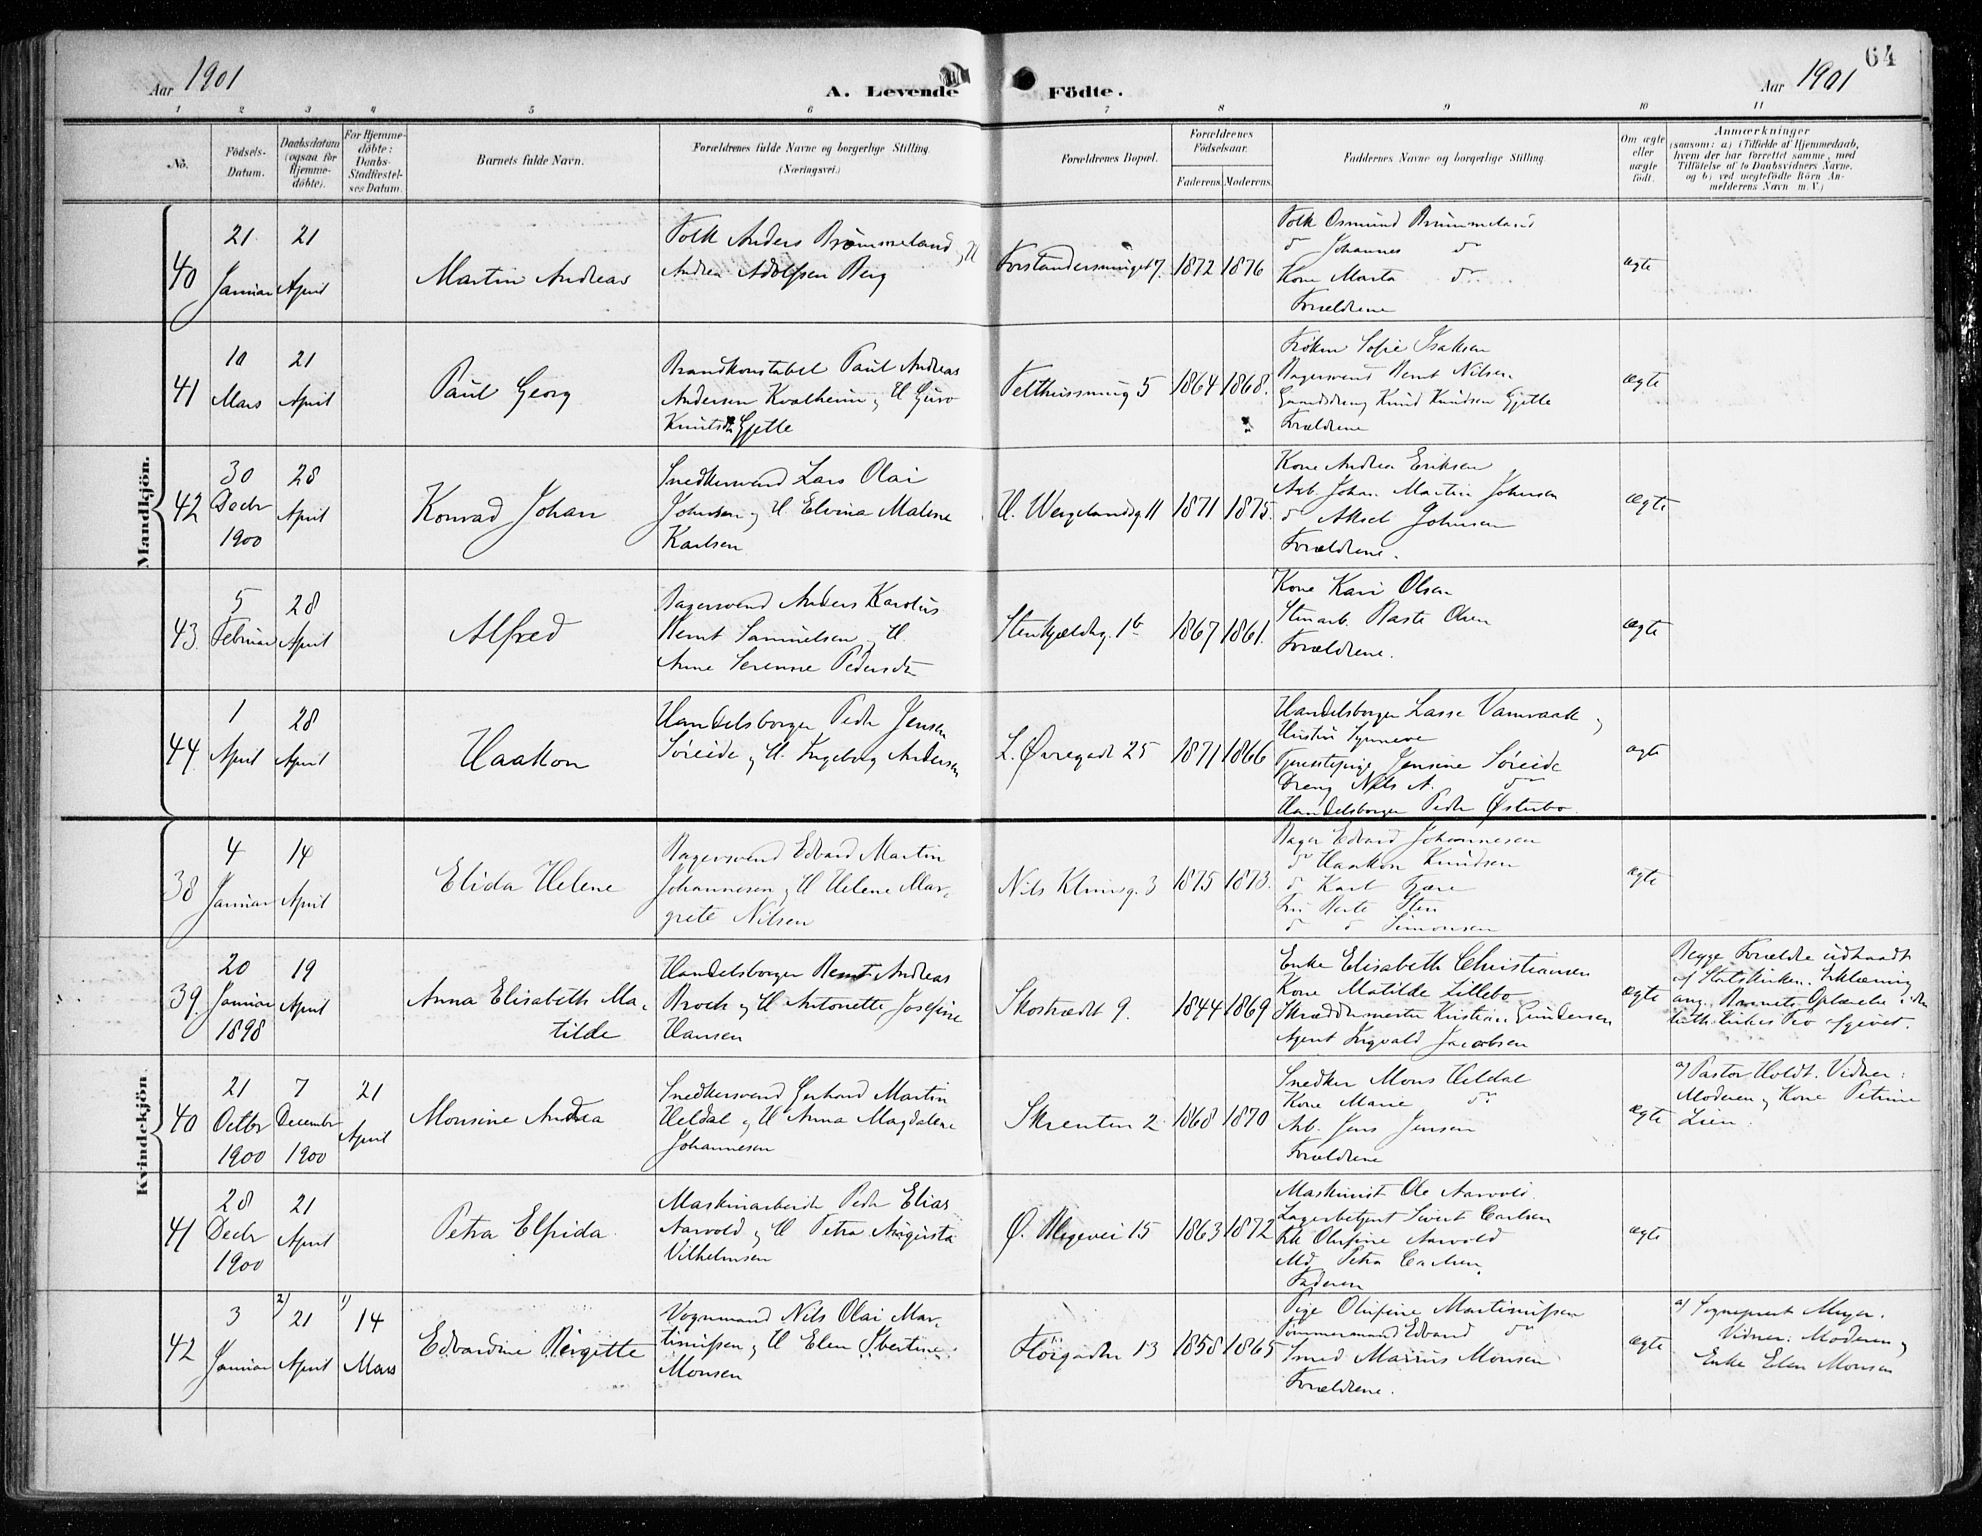 64
Aar 1901
A. Levende Födte.
Aar 1901
1 2 3 4 5 6 7 8 9 10 11
No.
Födsels-
Datum.
Daabsdatum
(ogsaa for
Hjemme-
döbte).
For Hjemme-
döbte:
Daabs-
Stadfæstel-
ses Datum.
Barnets fulde Navn.
Forældrenes fulde Navne og borgerlige Stilling
(Næringsvei.)
Forældrenes Bopæl.
Forældrenes
Födselsaar.
Faderens. Moderens.
Faddernes Navne og borgerlige Stilling
Om ægte
eller
uægte
födt.
Anmærkninger
(saasom: a) i Tilfælde af Hjemmedaab,
hvem der har forrettet samme, med
Tilföielse af to Daabsvidners Navne,
og b) ved uægtefödte Börn An-
melderens Navn m. V.)
Mandkjön.
40
21 Januar
21 April
Martin Andreas
Folk Anders Brømmeland, H
Andrea Adolfsen Berg
Forstandersmuget 7.
1872 1876
Folk Osmund Brümmeland
do Johannes do
Kone Marta do
Forældrene
ægte
41
10 Mars
21 April
Paul Georg
Brandkonstabel Paul Andreas
Andersen Kvalheim og H Guro
Knutsdtr Gjette
Felthussmug 5
1864 1868.
Frøken Sofie Isaksen
Bagersvend Bernt Nilsen
Gaardsdreng Knud Knudsen Gjette
Forældrene
Ægte
42
30 Decbr 1900
28 April
Konrad Johan
Snedkersvend Lars Olai
Johnsen og H. Elvina Malene
Karlsen
H. Wergelandsg 11
1871 1875.
Kone Andrea Eriksen
Arb. Johan Martin Johnsen
do Aksel Johnsen
Forældrene.
Ægte
43.
5 Februar
28 April
Alfred
Bagersvend Anders Karolus
Bernt Samuelsen og H.
Anne Serenne Pedersdtr
Stenkjælderg. 1b
1867 1861.
Kone Kari Olsen
Stenarb. Baste Olsen
Forældrene.
Ægte
44.
1 April
28 April
Haakon
Handelsborger Peder Jensen
Søreide og H. Ingeborg Andersen
L. Øvregade 25
1871 1866
Handelsborger Lasse Vamraak og
Hustru Synneve
Tjenestepige Jensine Søreide
Dreng Nils A. do
Handelsborger Peder Østerbo.
ægte
Kvindekjön
38
4 Januar
14 April
Elida Helene
Bagersvend Edvard Martin
Johannesen og H Helene Mar-
grete Nilsen
Nils Klimsg. 3
1875 1873.
Bager Edvard Johannesen
do Haakon Knudsen
do Karl
Fru Berte Sten
do do Simonsen
Ægte
39.
20 Januar 1898
19 April
Anna Elisabeth Ma-
tilde
Handelsborger Bernt Andreas
Broch og H Antonette Josefine
Hansen
Skostrædet 9.
1844 1869
Enke Elisabeth Christiansen
Kone Matilde Lillebo
Skræddermester Kristian Gundersen
Agent Ingvald Jacobsen
Ægte
Begge Forældre udtraadt
af Statskirken. Erklæring
ang. Barnets Oplærelse i den
luth. Kirkes Tro afgivet.
40
21 Octbr 1900
7 December 1900
21 April
Monsine Andrea
Snedkersvend Gerhard Martin
Heldal og H Anna Magdalene
Johannesen
Skrenten 2
1868 1870
Snedker Mons Heldal
Kone Marie do
Arb. Jens Jensen
Forældrene
Ægte
a) Pastor Holdt. Vidner:
Moderen og Kone Petrine
Lien.
41
28 Decbr 1900
21 April
Petra Elfrida.
Maskinarbeider Peder Elias
Aarvold og H Petra Augusta
Vilhelmsen
Ø. Blegevei 15
1863 1872
Maskinist Ole Aarvold.
Lagerbetjent Sivert Carlsen
Frk Olufine Aarvold
Md. Petra Carlsen.
Faderen
Ægte
42
3 Januar
2) 21 April
1) 14 Mars
Edvardine Birgitte
Vognmand Nils Olai Mar-
tinussen og H Elen Ibertine
Monsen
Fløigaden 13
1858 1865
Pige Olufine Martinussen
Tømmermand Edvard do
Smed Marius Monsen
Forældrene.
Ægte
a) Sognepræst Meyer.
Vidner: Moderen og
Enke Elen Monsen